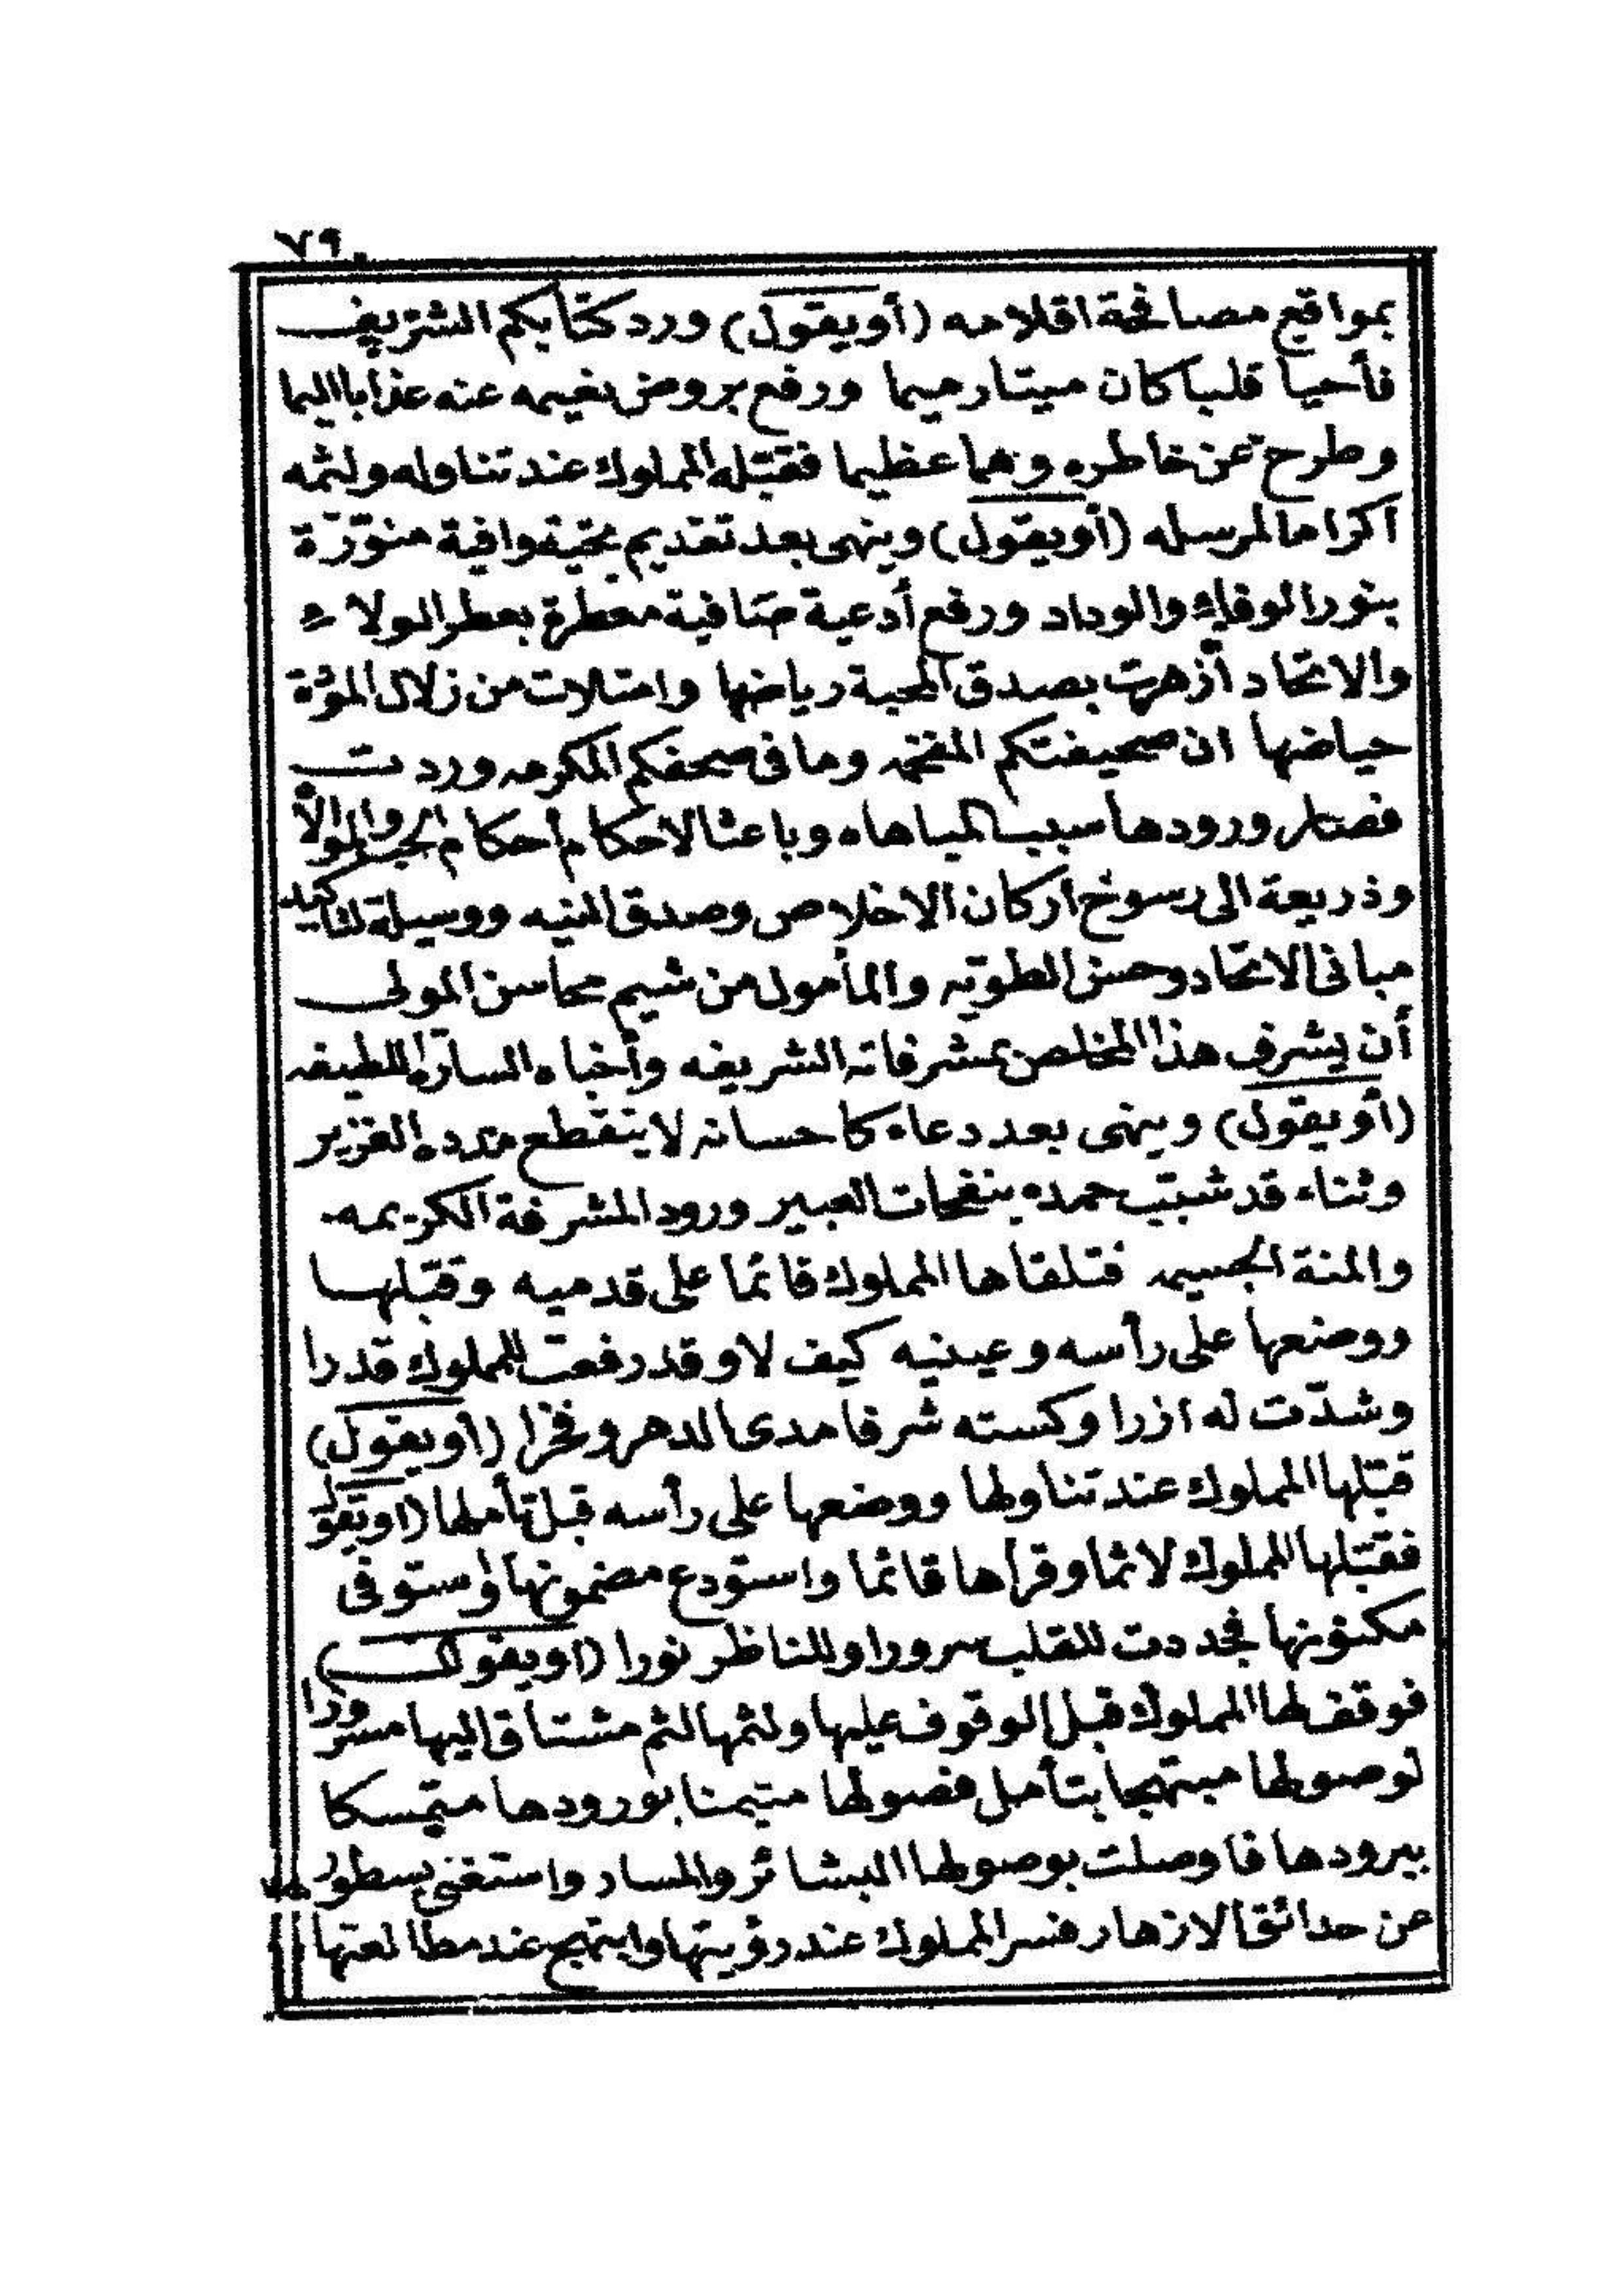 ٧٩
بمواقع مصافحة اقلامه (أويقول) ورد كتابكم الشريف
فأحيا قلبا كان ميتا رميما ورفع بروض نعيمه عنه عذابا اليما
وطرح عن خاطره وهما عظيما فقبّله المملوك عند تناوله ولثمه
اكراما لمرسله (أويقول) وينهى بعد تقديم تحية وافية منوّرة
بنور الوفاء والوداد ورفع أدعية صافية معطرة بعطر الولاء
والاتحاد أزهرت بصدق المحبة رياضها وامتلات من زلال المودّة
حياضها ان صحيفتكم المفخمه وما فى صحفكم المكرمه وردت
فصار ورودها سببا للمباهاه وباعثا لاحكام أحكام الحب والموالاه
وذريعة الى رسوخ أركان الاخلاص وصدق النيه ووسيلة لتأكيد
مبانى الاتحاد وحسن الطويّه والمأمول من شيم محاسن المولى
أن يشرف هذا المخلص بمشرفاته الشريفه وأخباره السارّه اللطيفه
(أويقول) وينهى بعد دعاء كاحسانه لا ينقطع مدده الغزير
وثناء قد شبّب حمده بنفحات العبير ورود المشرفة الكريمه
والمنة الجسيمه فتلقاها المملوك قائما على قدميه وقبّلها
ووضعها على رأسه وعينيه كيف لا وقد رفعت للمملوك قدرا
وشدّت له ازرا وكسته شرفا مدى الدهر وفخرا (أويقول)
قبّلها المملوك عند تناولها ووضعها على رأسه قبل تأملها (اويقول
فقبّلها المملوك لاثما وقرأها قائما واستودع مضمونها واستوفى
مكنونها فجددت للقلب سرورا وللناظر نورا (اويقول)
فوقف لها المملوك قبل الوقوف عليها ولثمها لثم مشتاق اليها مسرورا
لوصولها مبتهجا بتأمل فصولها متيمنا بورودها متمسكا
ببرودها فاوصلت بوصولها البشائر والمسار واستغنى بسطورها
عن حدائق الازهار فسر المملوك عند رؤيتها وابتهج عند مطالعتها